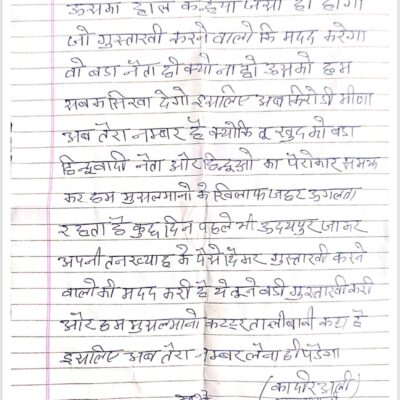 उसका हाल कन्हैया जैसा ही होगा
जो गुस्ताखी करने वालो कि मदद करेगा
वो बडा नेता ही क्यो ना हो उसको हम
सबक सिखा देगो इसलिए अब किरोडी मीणा
अब तेरा नम्बर है क्योकि तू खुद को बडा
हिन्दूवादी नेता और हिन्दूओ का पेरोकार समझ
कर हम मुसलमानो के खिलाफ जहर उगलता
रहता है कुछ दिन पहले भी उदयपुर जाकर
अपनी तनख्वाह के पैसे देकर गुस्ताखी करने
वालो की मदद करी है ये तूने बडी गुस्ताखी करी
और हम मुसलमानो कटटर तालीबानी कहा है
इसलिए अब तेरा नम्बर लेना ही पडेगा
(कादीर अली)